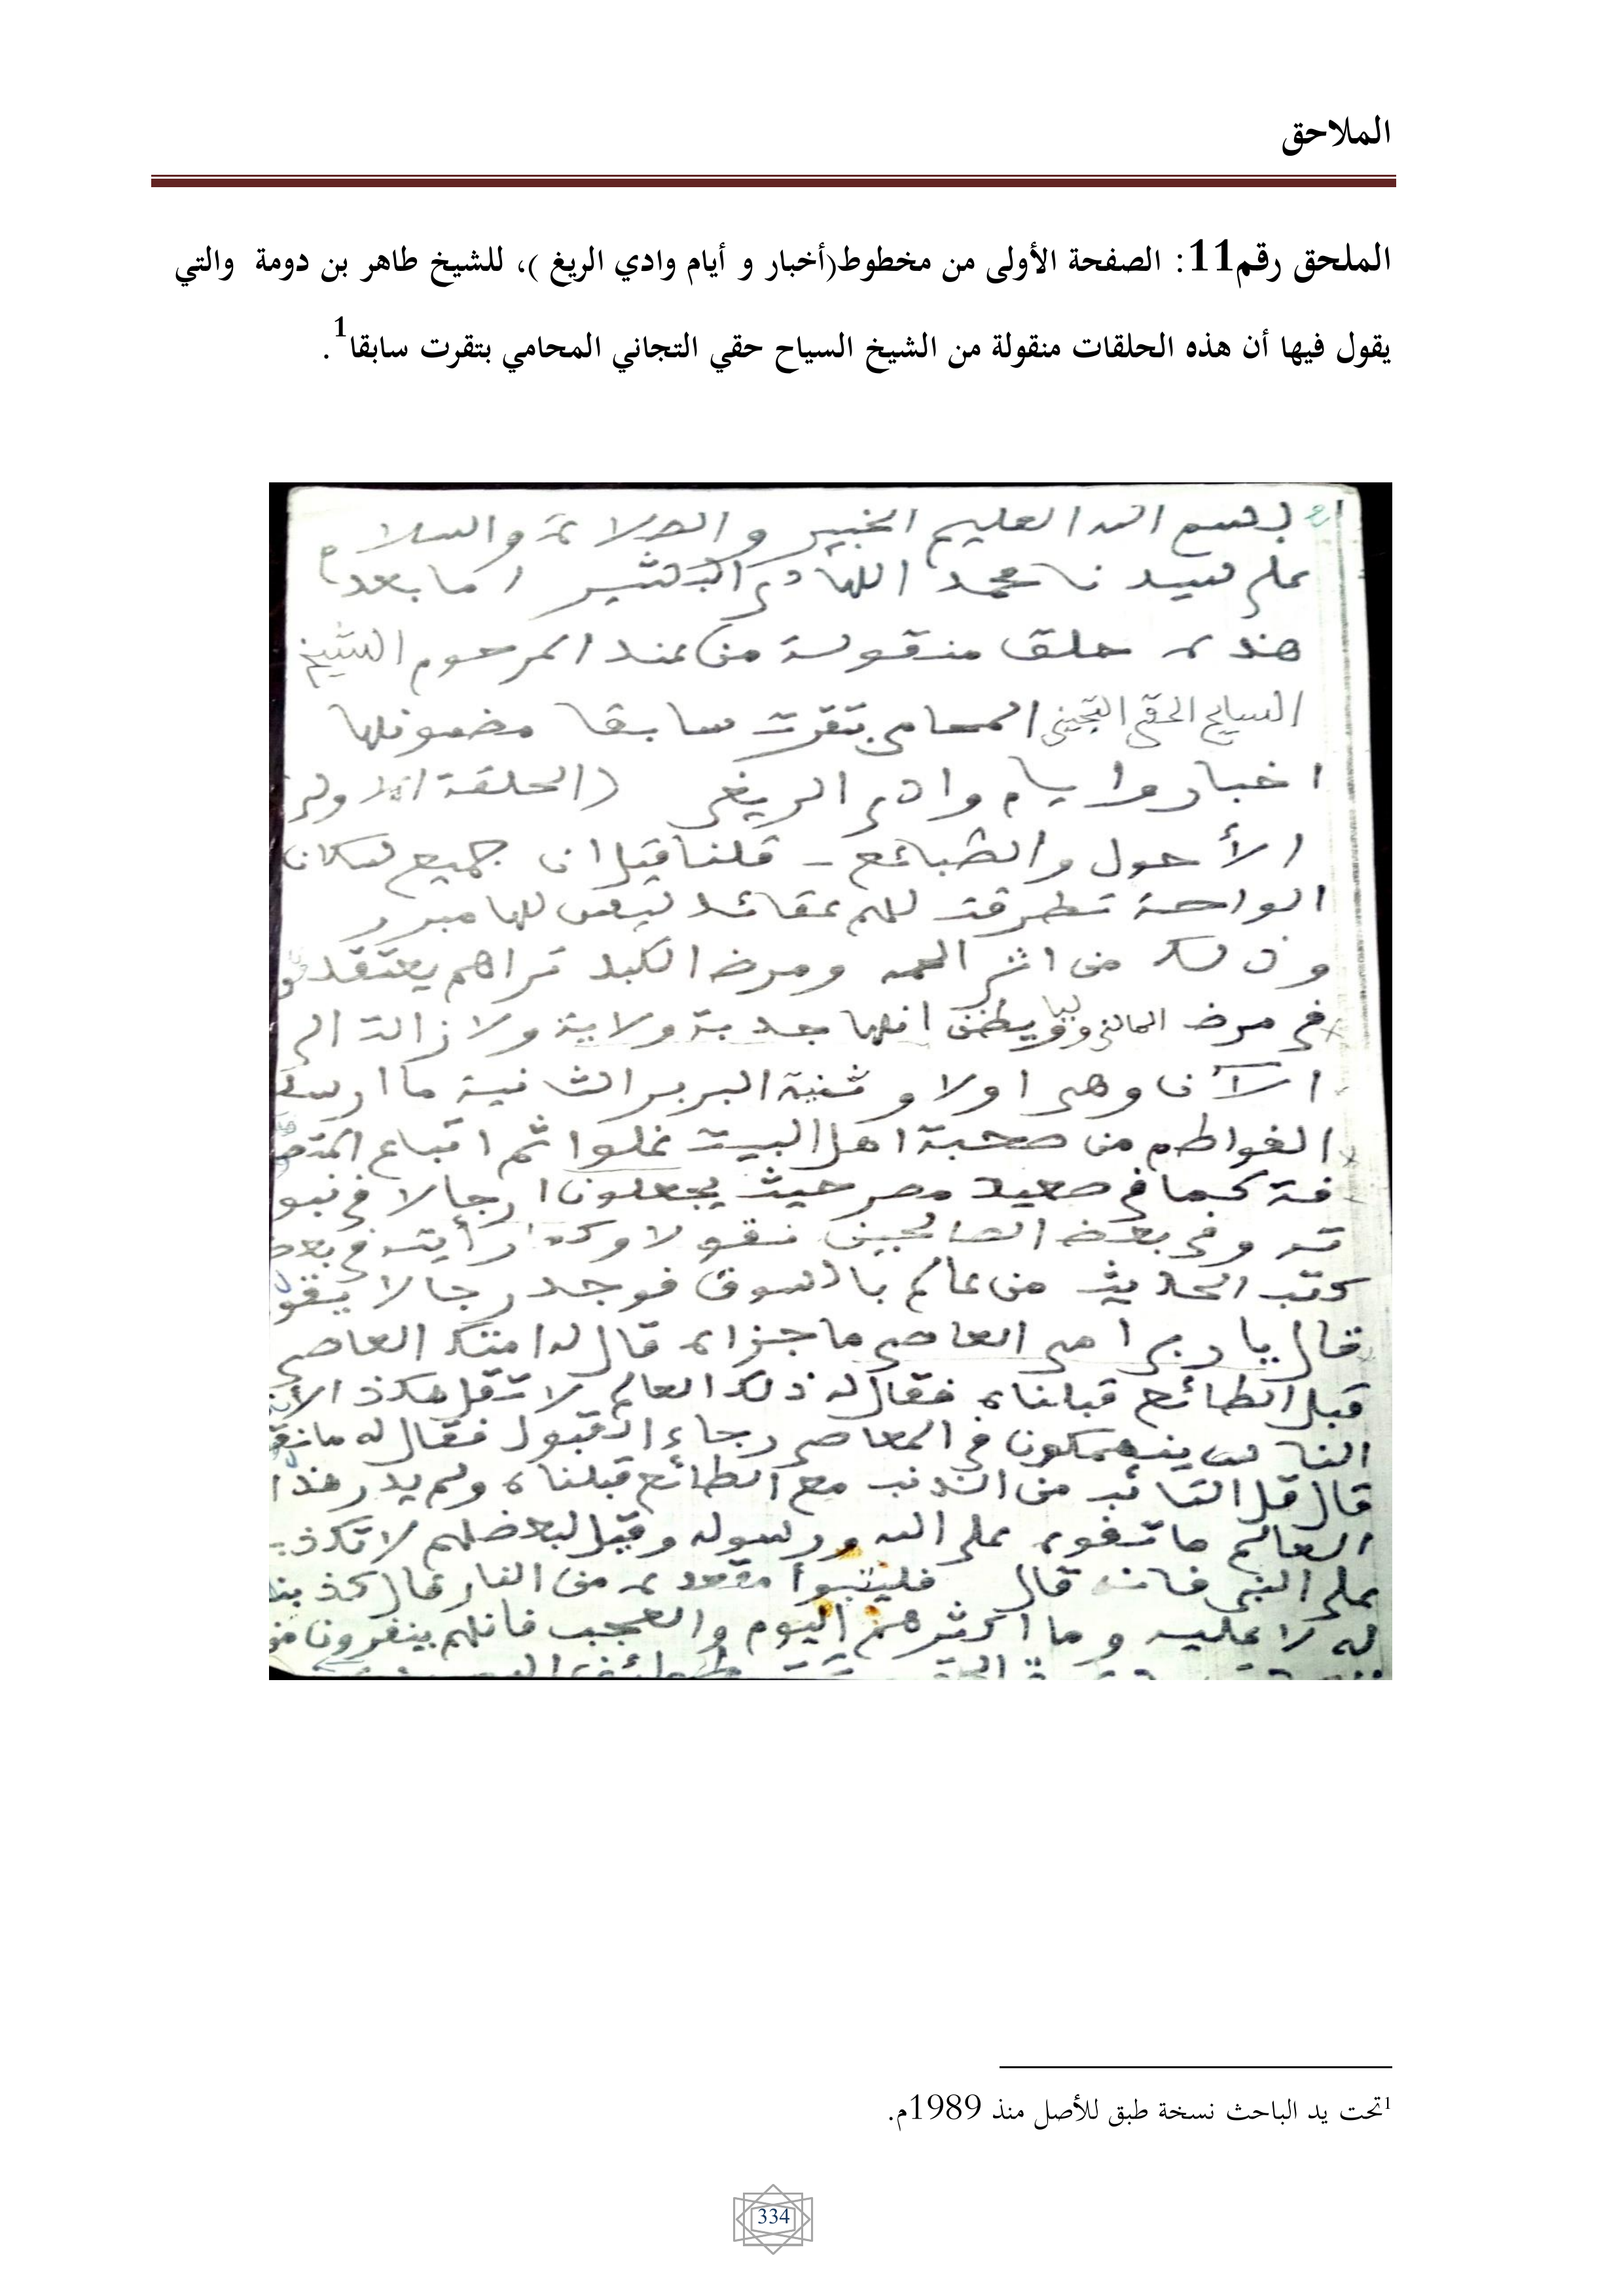 الملاحق
الملحق رقم11: الصفحة الأولى من مخطوط(أخبار و أيام وادي الريغ )، للشيخ طاهر بن دومة والتي
يقول فيها أن هذه الحلقات منقولة من الشيخ السياح حقي التجاني المحامي بتقرت سابقا1.
بسم الله العليم الخبير والصلاة والسلام
على سيدنا محمد الهادي البشير اما بعد
هذه حلق منقولة من عند المرحوم الشيخ
السايح الحقي التجيني المحامي بتقرت سابقا مضمونها
اخبار وايام وادي الريغي (الحلقة الاولى
الأحول والطبائع - قلنا قبل ان جميع سكان
الواحة تطرقت لهم عقائد ليس لها مبرر
وذلك من اثر الحمه ومرض الكبد تراهم يعتقدو
في مرض ويظن انها جدبة ولاية ولا زالت الى
الآن وهي اولا وثنية البربر الثانية ما
من صحبة اهل البيت غلوا ثم اتباع
فة كما في صعيد مصر حيث يجعلون ارجالا في نبو
ته وفي بعض الصالحين نقولا وكذا رأيته في بعض
كتب الحديث من عالم بالسوق فوجد رجالا يقول
قال يا ربي العاصي ماجزاه قال له العاصي
قبل الطائع قبلناه فقال له ذلك العالم لا تقل هكذ
الناس ينهمكون في المعاصي رجاء القبول فقال له
قال قل التائب من الذنب مع الطائع قبلناه ولم يدر هذا
العالم ما تفوه على الله ورسوله وقيل لبعضهم لا تكذ
على النبي فانه قال فليتبوأ مقعده من النار قال كذبنا
له لا عليه وما اكثرهم اليوم والعجب فانهم ينفرون من
1تحت يد الباحث نسخة طبق للأصل منذ 1989م.
334